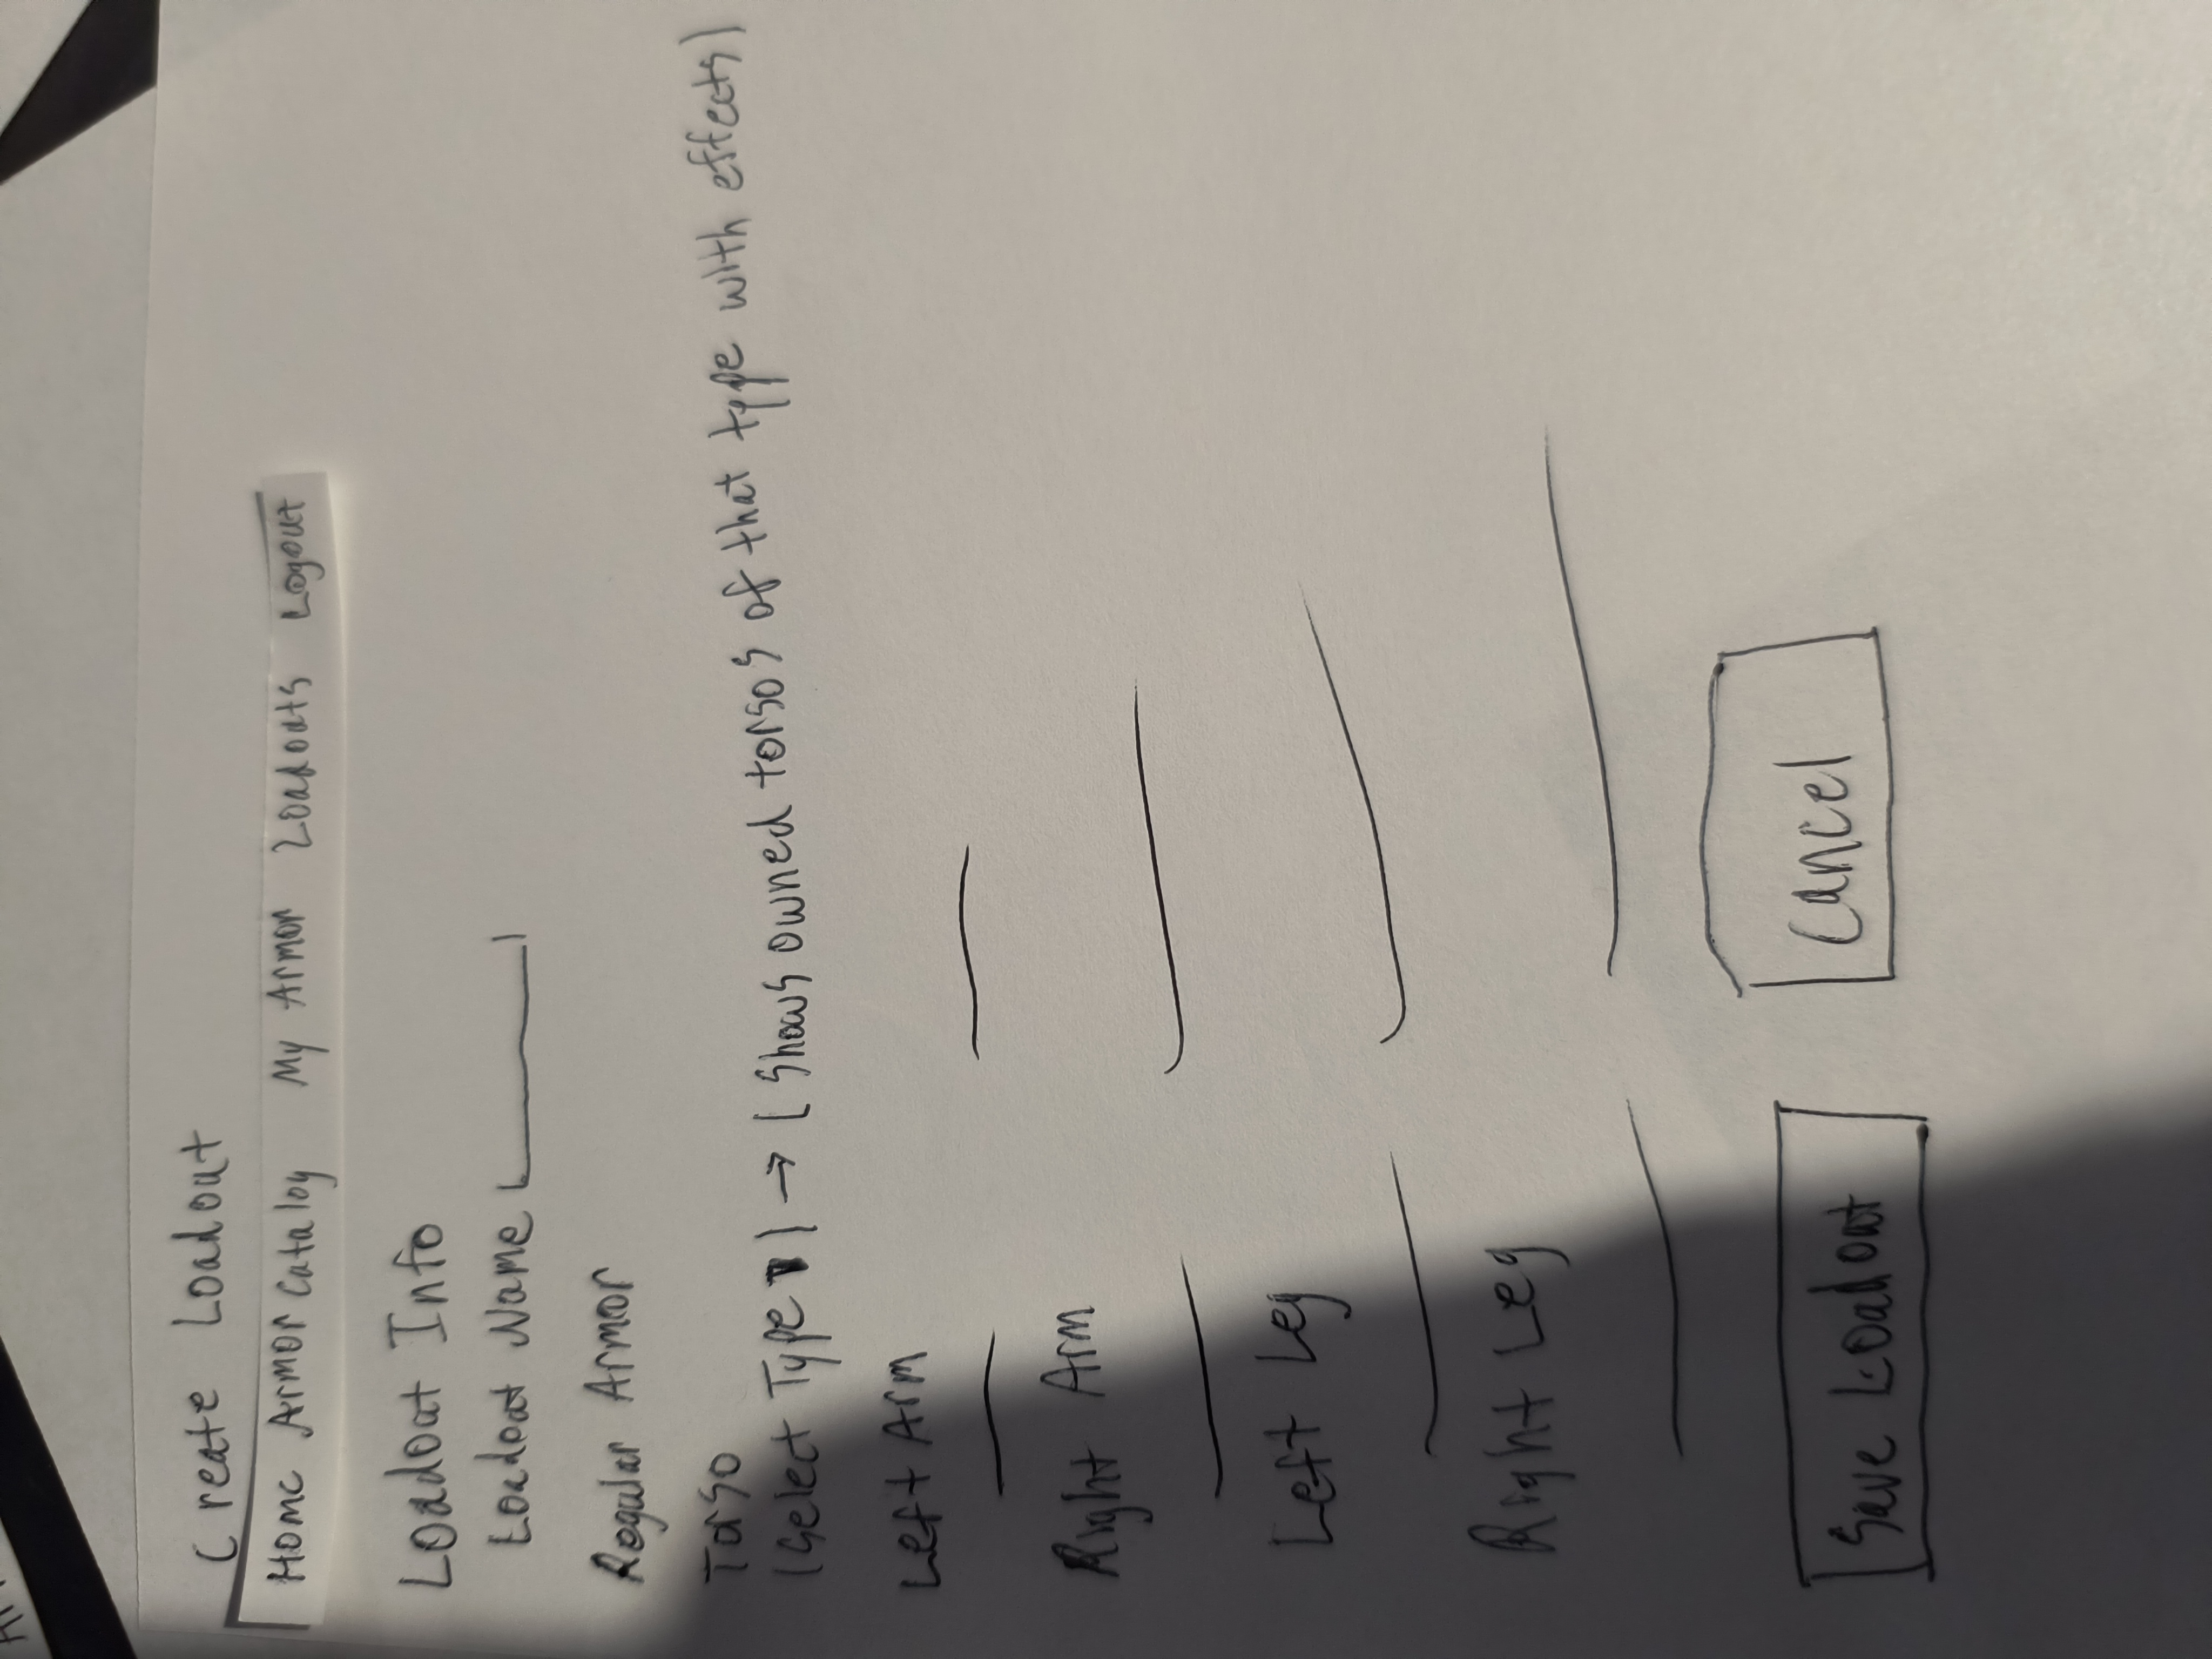 Create Loadout
Home Armor Catalog My Armor Loadouts Logout
Loadout Info
Loadout Name
Regular Armor
Torso
(Select Type ▼) → [Shows owned torsos of that type with effects]
Left Arm
Right Arm
Left Leg
Right Leg
Save Loadout
Cancel